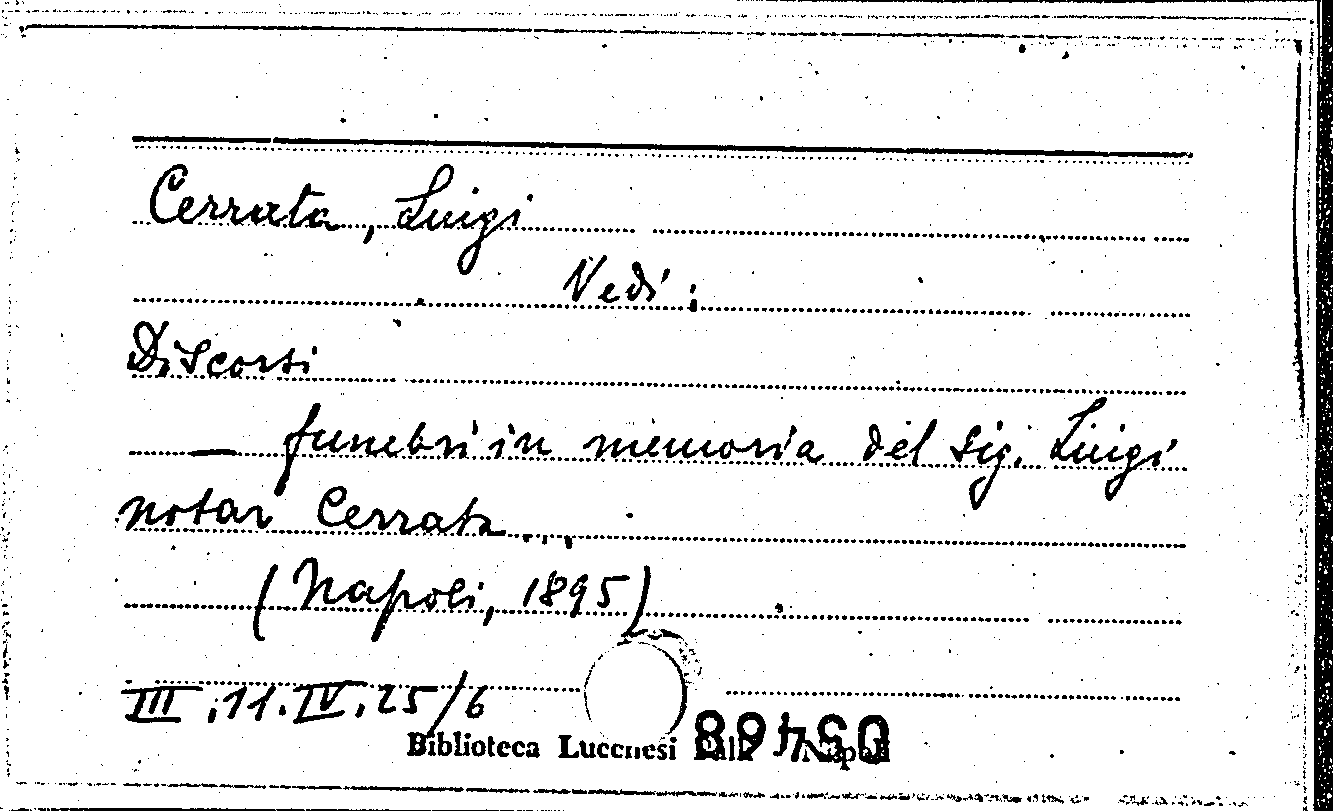 Cerrata, Luigi
Vedi:
Discorsi
— funebri in memoria del sig. Luigi
notar Cerrata...
(Napoli, 1895)
III.11.IV.25/6
Biblioteca Lucchesi Palli Napoli